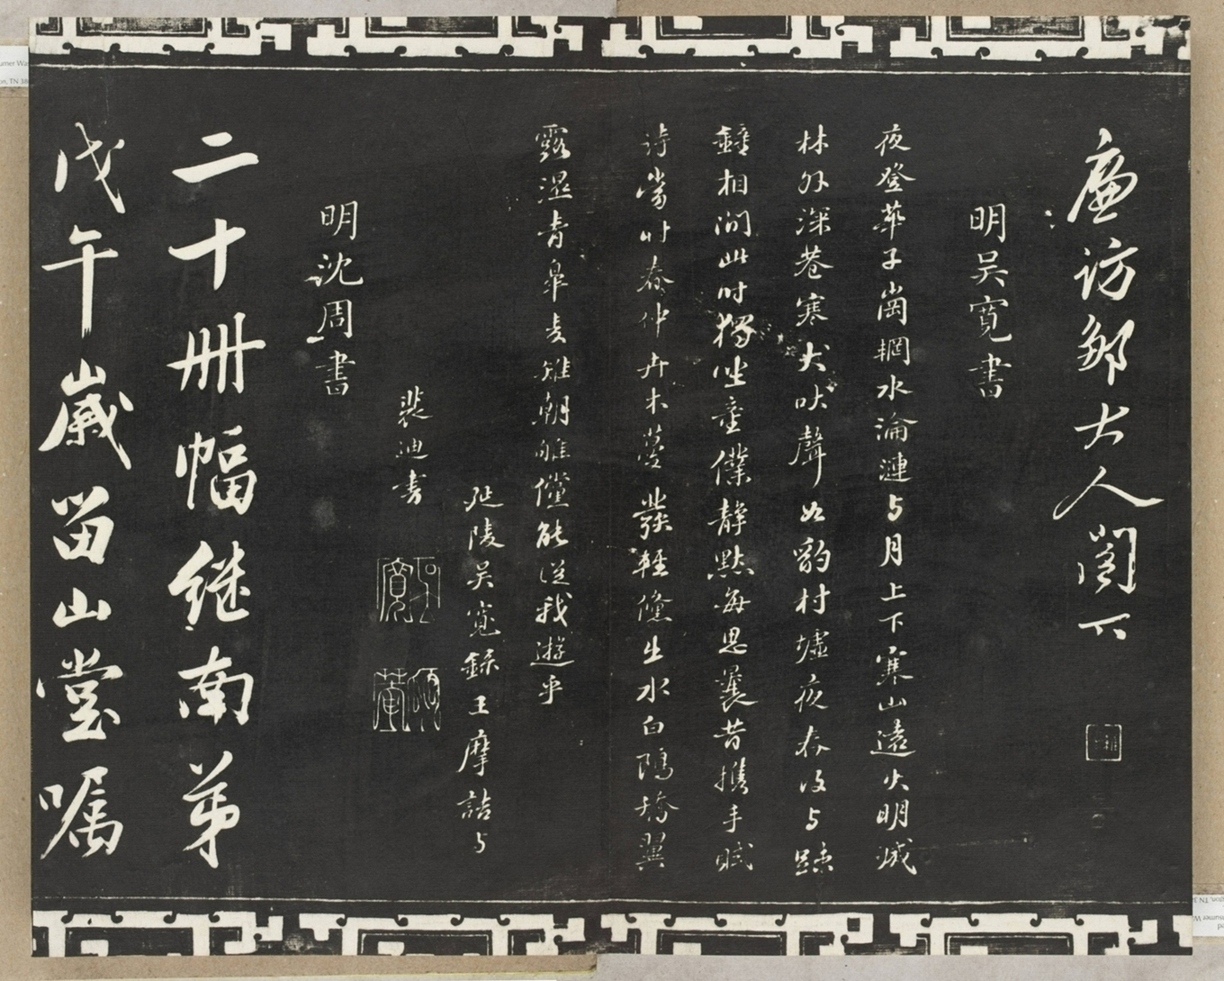 廉访邹大人阁下
明吴寛書
夜登華子崗輞水淪漣与月上下寒山遠火明滅
林外深巷寒犬吠聲如豹村墟夜舂復与疎
鐘相間此时獨坐童僕静默每思曩昔携手賦
诗當待春仲卉木蔓發輕鯈出水白鷗矯翼
露濕青皋麦雉朝雊儻能従我遊乎
延陵吴寛録王摩詰与
裴迪書
明沈周書
二十冊幅继南弟
戊午嵗留山堂嘱